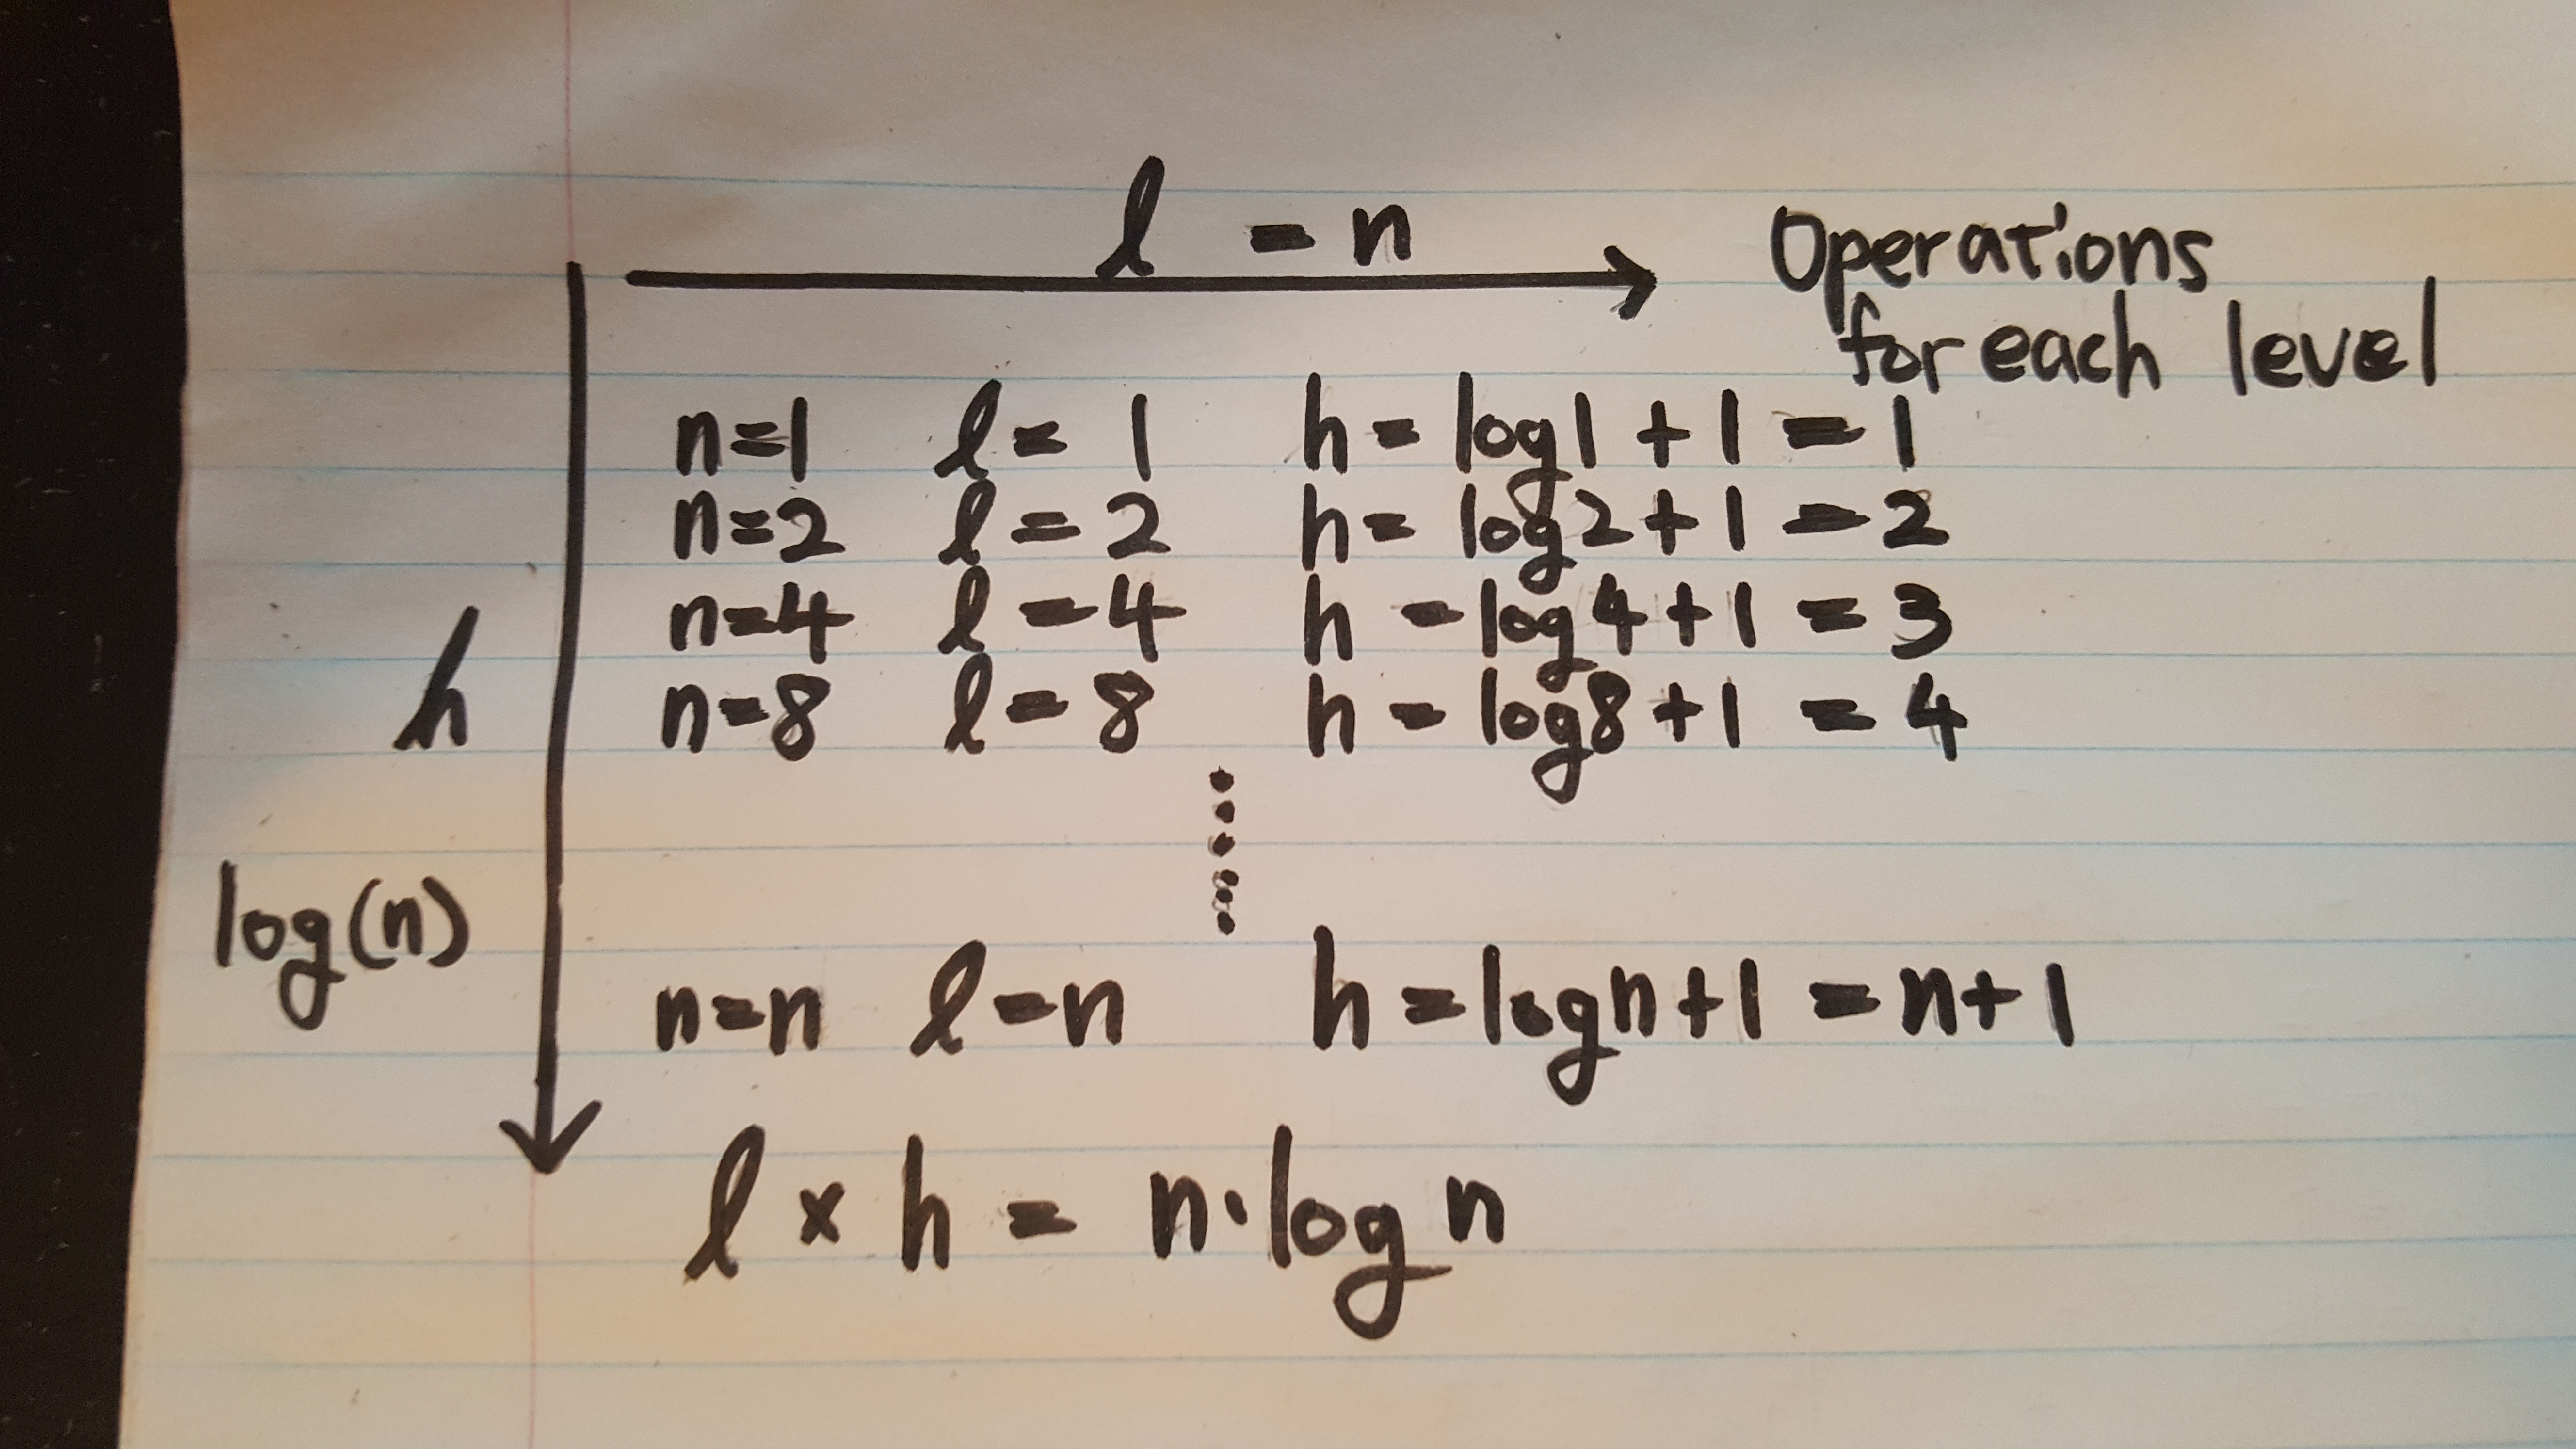 l = n Operations
for each level
n=1 l = 1 h = log1 + 1 = 1
n=2 l = 2 h = log2 + 1 = 2
n=4 l = 4 h = log4 + 1 = 3
h n=8 l = 8 h = log8 + 1 = 4
log(n)
n=n l=n h = logn + 1 = n+1
l x h = n.logn